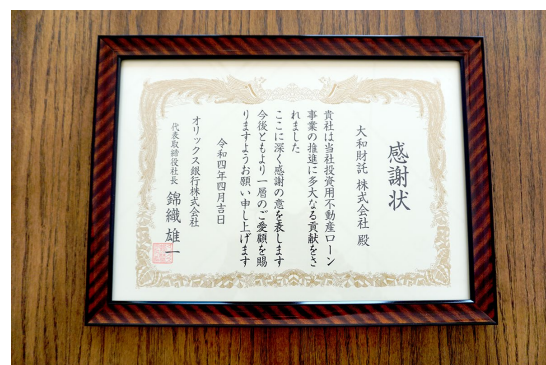 感謝状
大和財託 株式会社 殿
貴社は当社投資用不動産ローン
事業の推進に多大なる貢献をさ
れました
ここに深く感謝の意を表します
今後ともより一層のご愛顧を賜
りますようお願い申し上げます
令和四年四月吉日
オリックス銀行株式会社
代表取締役社長 錦織雄一